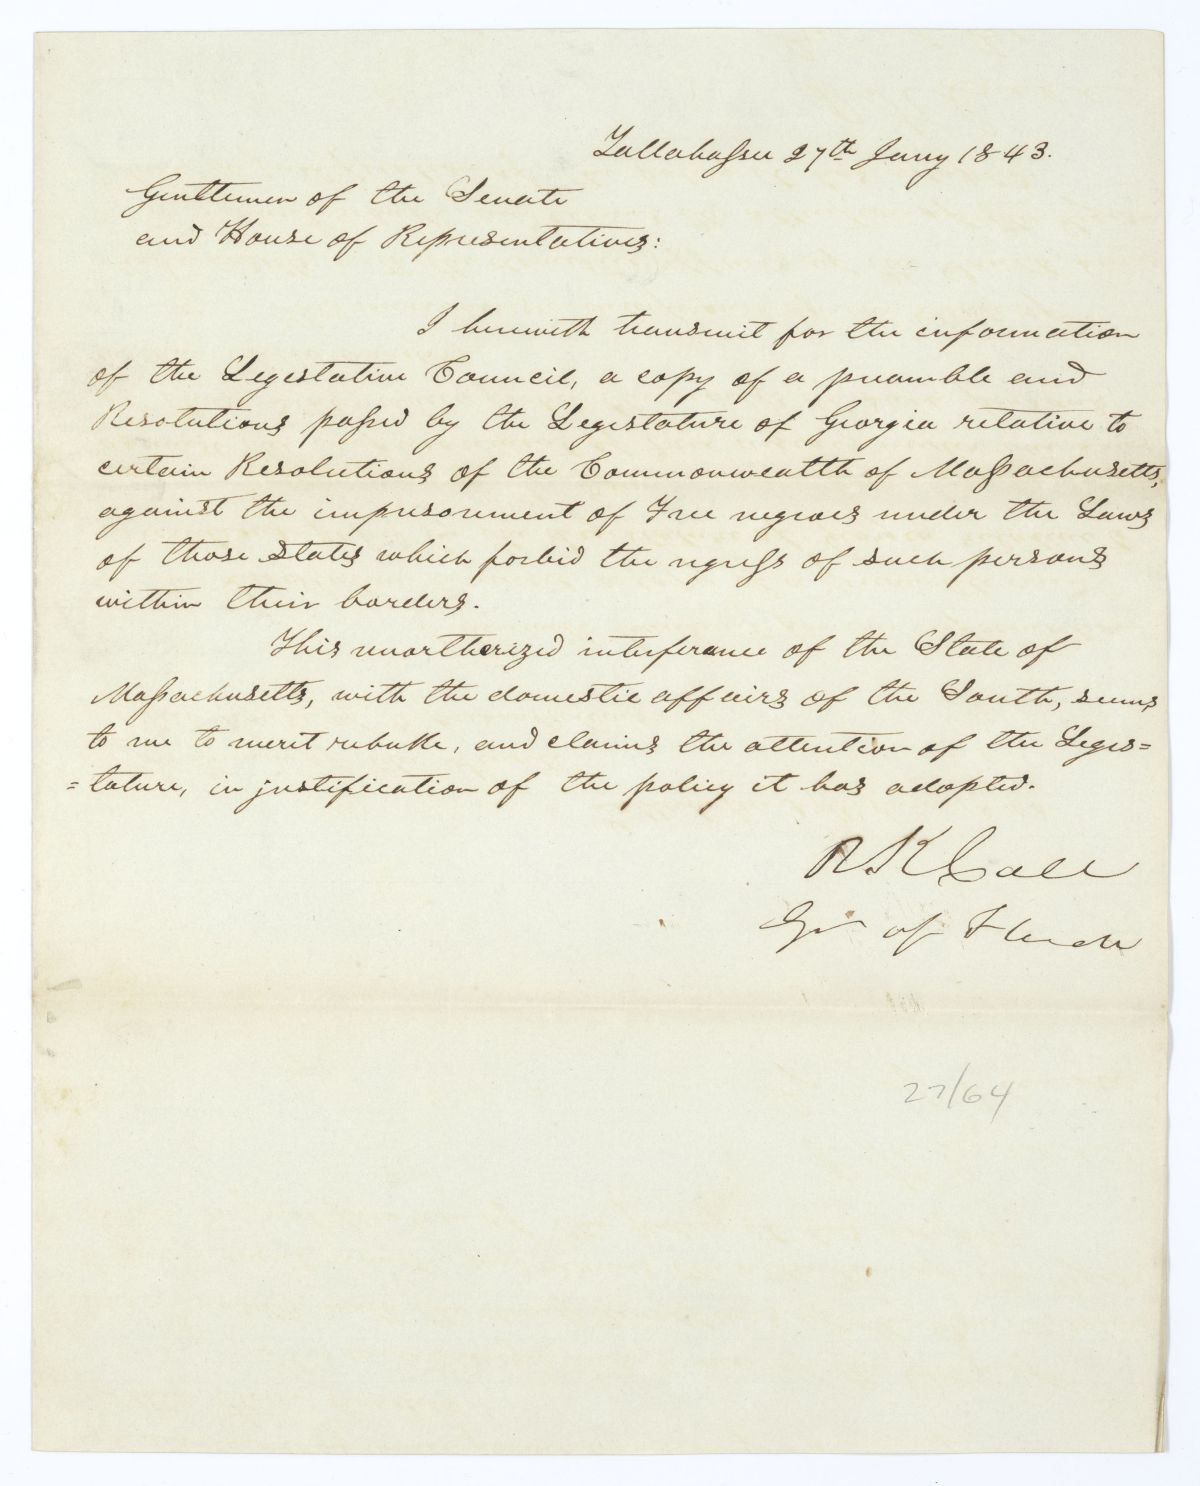 Tallahassee 27th Jany 1843.
Gentlemen of the Senate
and House of Representatives:
I herewith transmit for the information
of the Legislative Council, a copy of a preamble and
Resolutions passed by the Legislature of Georgia relative to
certain Resolutions of the Commonwealth of Massachusetts,
against the imprisonment of Free negroes under the Laws
of those States which forbid the egress of such persons
within their borders.
This unortherized interferance of the State of
Massachusetts, with the domestic affairs of the South, seems
to me to merit rebuke, and claims the attention of the Legis=
=lature, in justification of the policy it has adopted.
R K Call
Gov of Florida
27/64